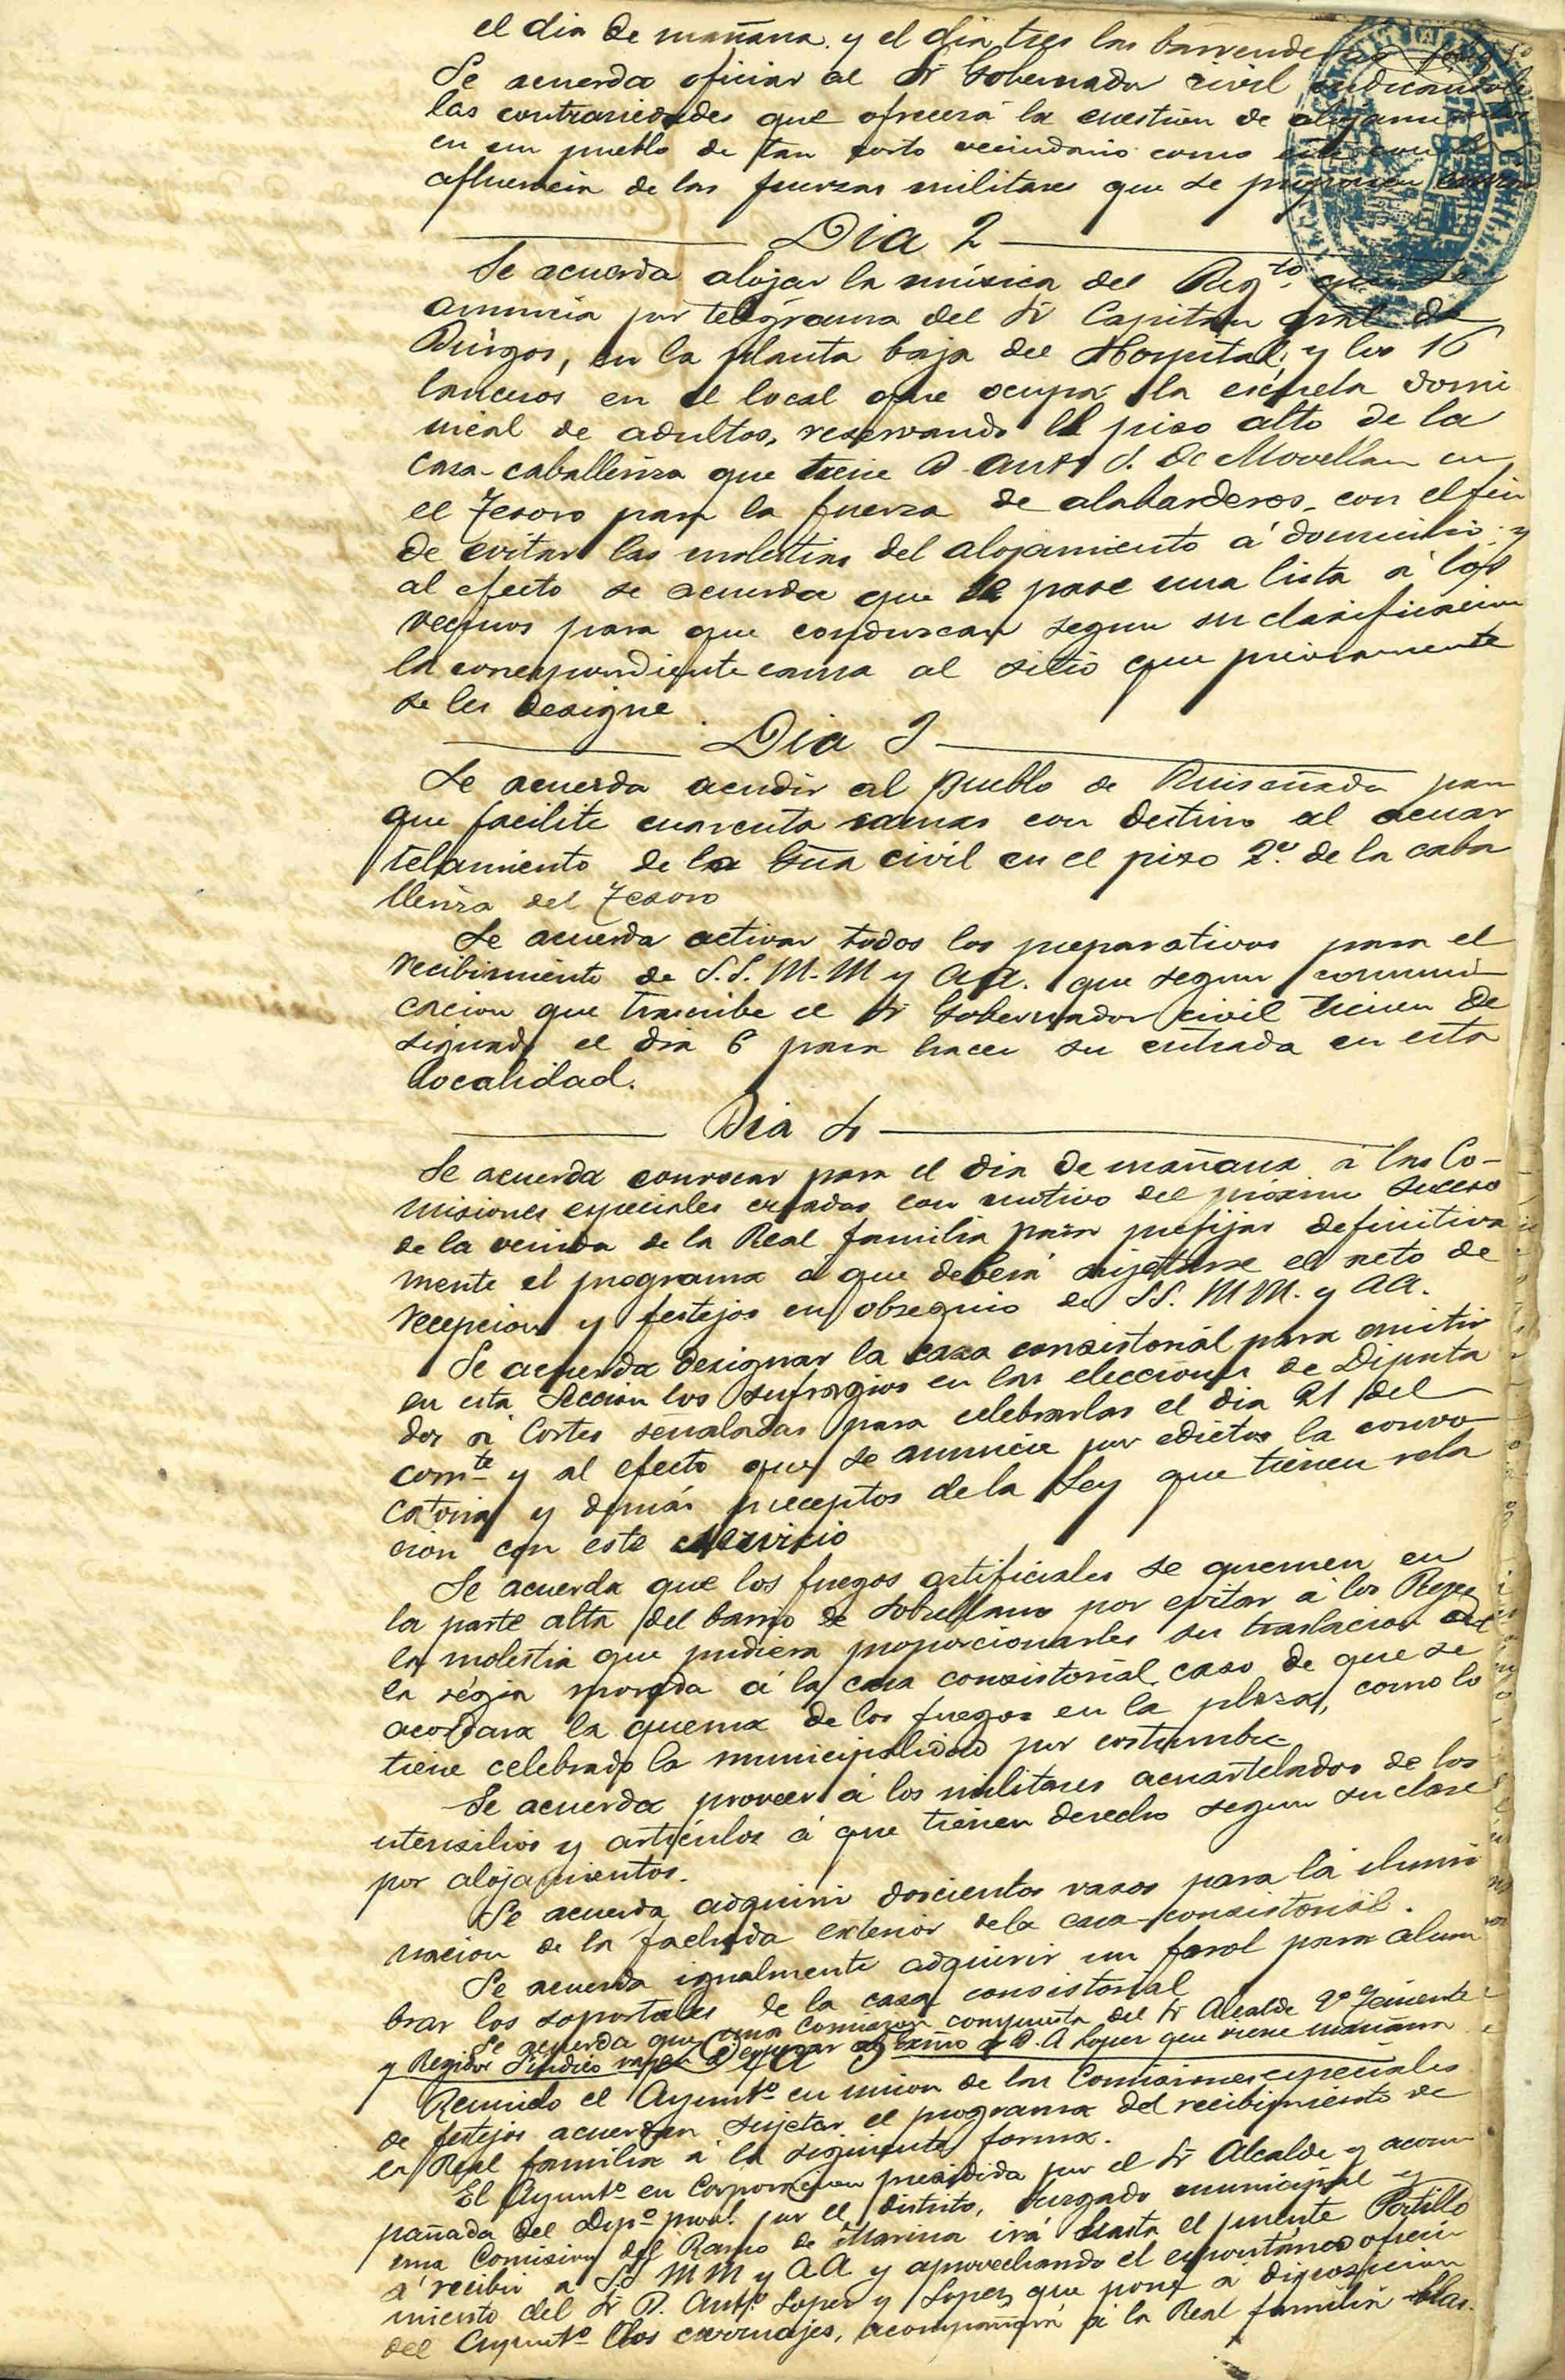 el dia de mañana y el dia tres las barrenderas
Se acuerda oficiar al Sr Gobernador civil indicandole
las contrariedades que ofrecerá la cuestion de alojamientos
en un pueblo de tan corto vecindario como este con la
afluencia de las fuerzas militares que se proponen enviar
Dia 2
Se acuerda alojar la música del Regto que se
anuncia por telégrama del Sr Capitan gral de
Burgos, en la planta baja del Hospital; y los 16
lanceros en el local que ocupa la escuela domi
nical de adultos, reservando el piso alto de la
casa-caballeriza que tiene D. Anto S. de Movellan en
el Tesoro para la fuerza de alabarderos, con el fin
de evitar las molestias del alojamiento á domicilio y
al efecto se acuerda que se pase una lista á los
vecinos para que conduzcan segun su clasificacion
la correspondiente cama al sitio que previamente
se les designe.
Dia 3
Se acuerda acudir al pueblo de Ruiseñada para
que facilite cuarenta camas con destino al acuar
telamiento de la Gua civil en el piso 2º de la caba
lleriza del Tesoro
Se acuerda activar todos los preparativos para el
recibimiento de S.S. M.M y AA. que segun comuni
cacion que trascribe el Sr Gobernador civil tienen de
signado el dia 6 para hacer su entrada en esta
localidad.
Dia 4
Se acuerda convocar para el dia de mañana á las Co-
misiones especiales creadas con motivo del próximo suceso
de la venida de la Real familia para prefijar definitiva
mente el programa á que deberá sujetarse el acto de
recepcion y festejos en obsequio de SS. MM. y AA.
Se acuerda designar la casa consistorial para emitir
en esta Seccion los sufragios en las elecciones de Diputa
dos á Cortes señaladas para celebrarlas el dia 21 del
corrte y al efecto que se anuncie por edictos la convo
catoria y demás preceptos de la Ley que tienen rela
cion con este servicio
Se acuerda que los fuegos artificiales se quemen en
la parte alta del barrio de Sobrellano por evitar á los Reyes
la molestia que pudiera proporcionarles su traslacion de
la régia morada á la casa consistorial caso de que se
acordara la quema de los fuegos en la plaza, como lo
tiene celebrado la municipalidad por costumbre
Se acuerda proveer á los militares acuartelados de los
utensilios y artículos á que tienen derecho segun su clase
por alojamientos.
Se acuerda adquirir doscientos vasos para la ilumi
nacion de la fachada exterior de la casa-consistorial.
Se acuerda igualmente adquirir un farol para alum
brar los soportales de la casa consistorial
Se acuerda que una Comision compuesta del Sr Alcalde 2º Teniente
y Regidor Síndico vayan á esperar al Exmo Sr D. A Lopez que viene mañana
Reunido el Ayuntº en union de las Comisiones especiales
de festejos acuerdan sujetar el programa del recibimiento de
la Real familia á la siguiente forma.
El Ayuntº en Corporacion presidida por el Sr Alcalde y acom
pañada del Dipº proval. por el distrito, Juzgado municipal y
una Comision del Ramo de Marina irá hasta el puente Portillo
á recibir a SS MM y AA y aprovechando el espontáneo ofreci
miento del Sr D. Antº Lopez y Lopez que pone a disposicion
del Ayuntº los carruajes, acompañará á la Real familia